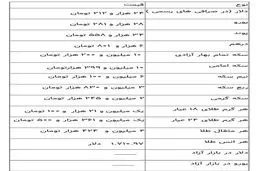 نوع قیمت
دلار (در صرافی های رسمی) ۲۴ هزار و ۲۱۲ تومان
یورو ۲۸ هزار و ۲۸۱ تومان
پوند ۳۴ هزار و ۵۵۸ تومان
درهم ۶ هزار و ۸۰۱ تومان
سکه تمام بهار آزادی ۱۰ میلیون و ۲۰۰ هزار تومان
سکه امامی ۱۰ میلیون و ۳۹۹ هزار تومان
نیم سکه ۶ میلیون و ۱۰۰ هزار تومان
ربع سکه میلیون و ۸۳۰ هزار تومان
سکه گرمی ۲ میلیون و هزار تومان
هر گرم طلای ۱۸ عیار یک میلیون و هزار و ۱۰۰ تومان
هر گرم طلای ۲۴ عیار یک میلیون و هزار و ۵۰۰ تومان
هر مثقال طلا ۴ میلیون و هزار تومان
هر انس طلا ۱.۷۱۰.۹۷ دلار
دلار در بازار آزاد
یورو در بازار آزاد